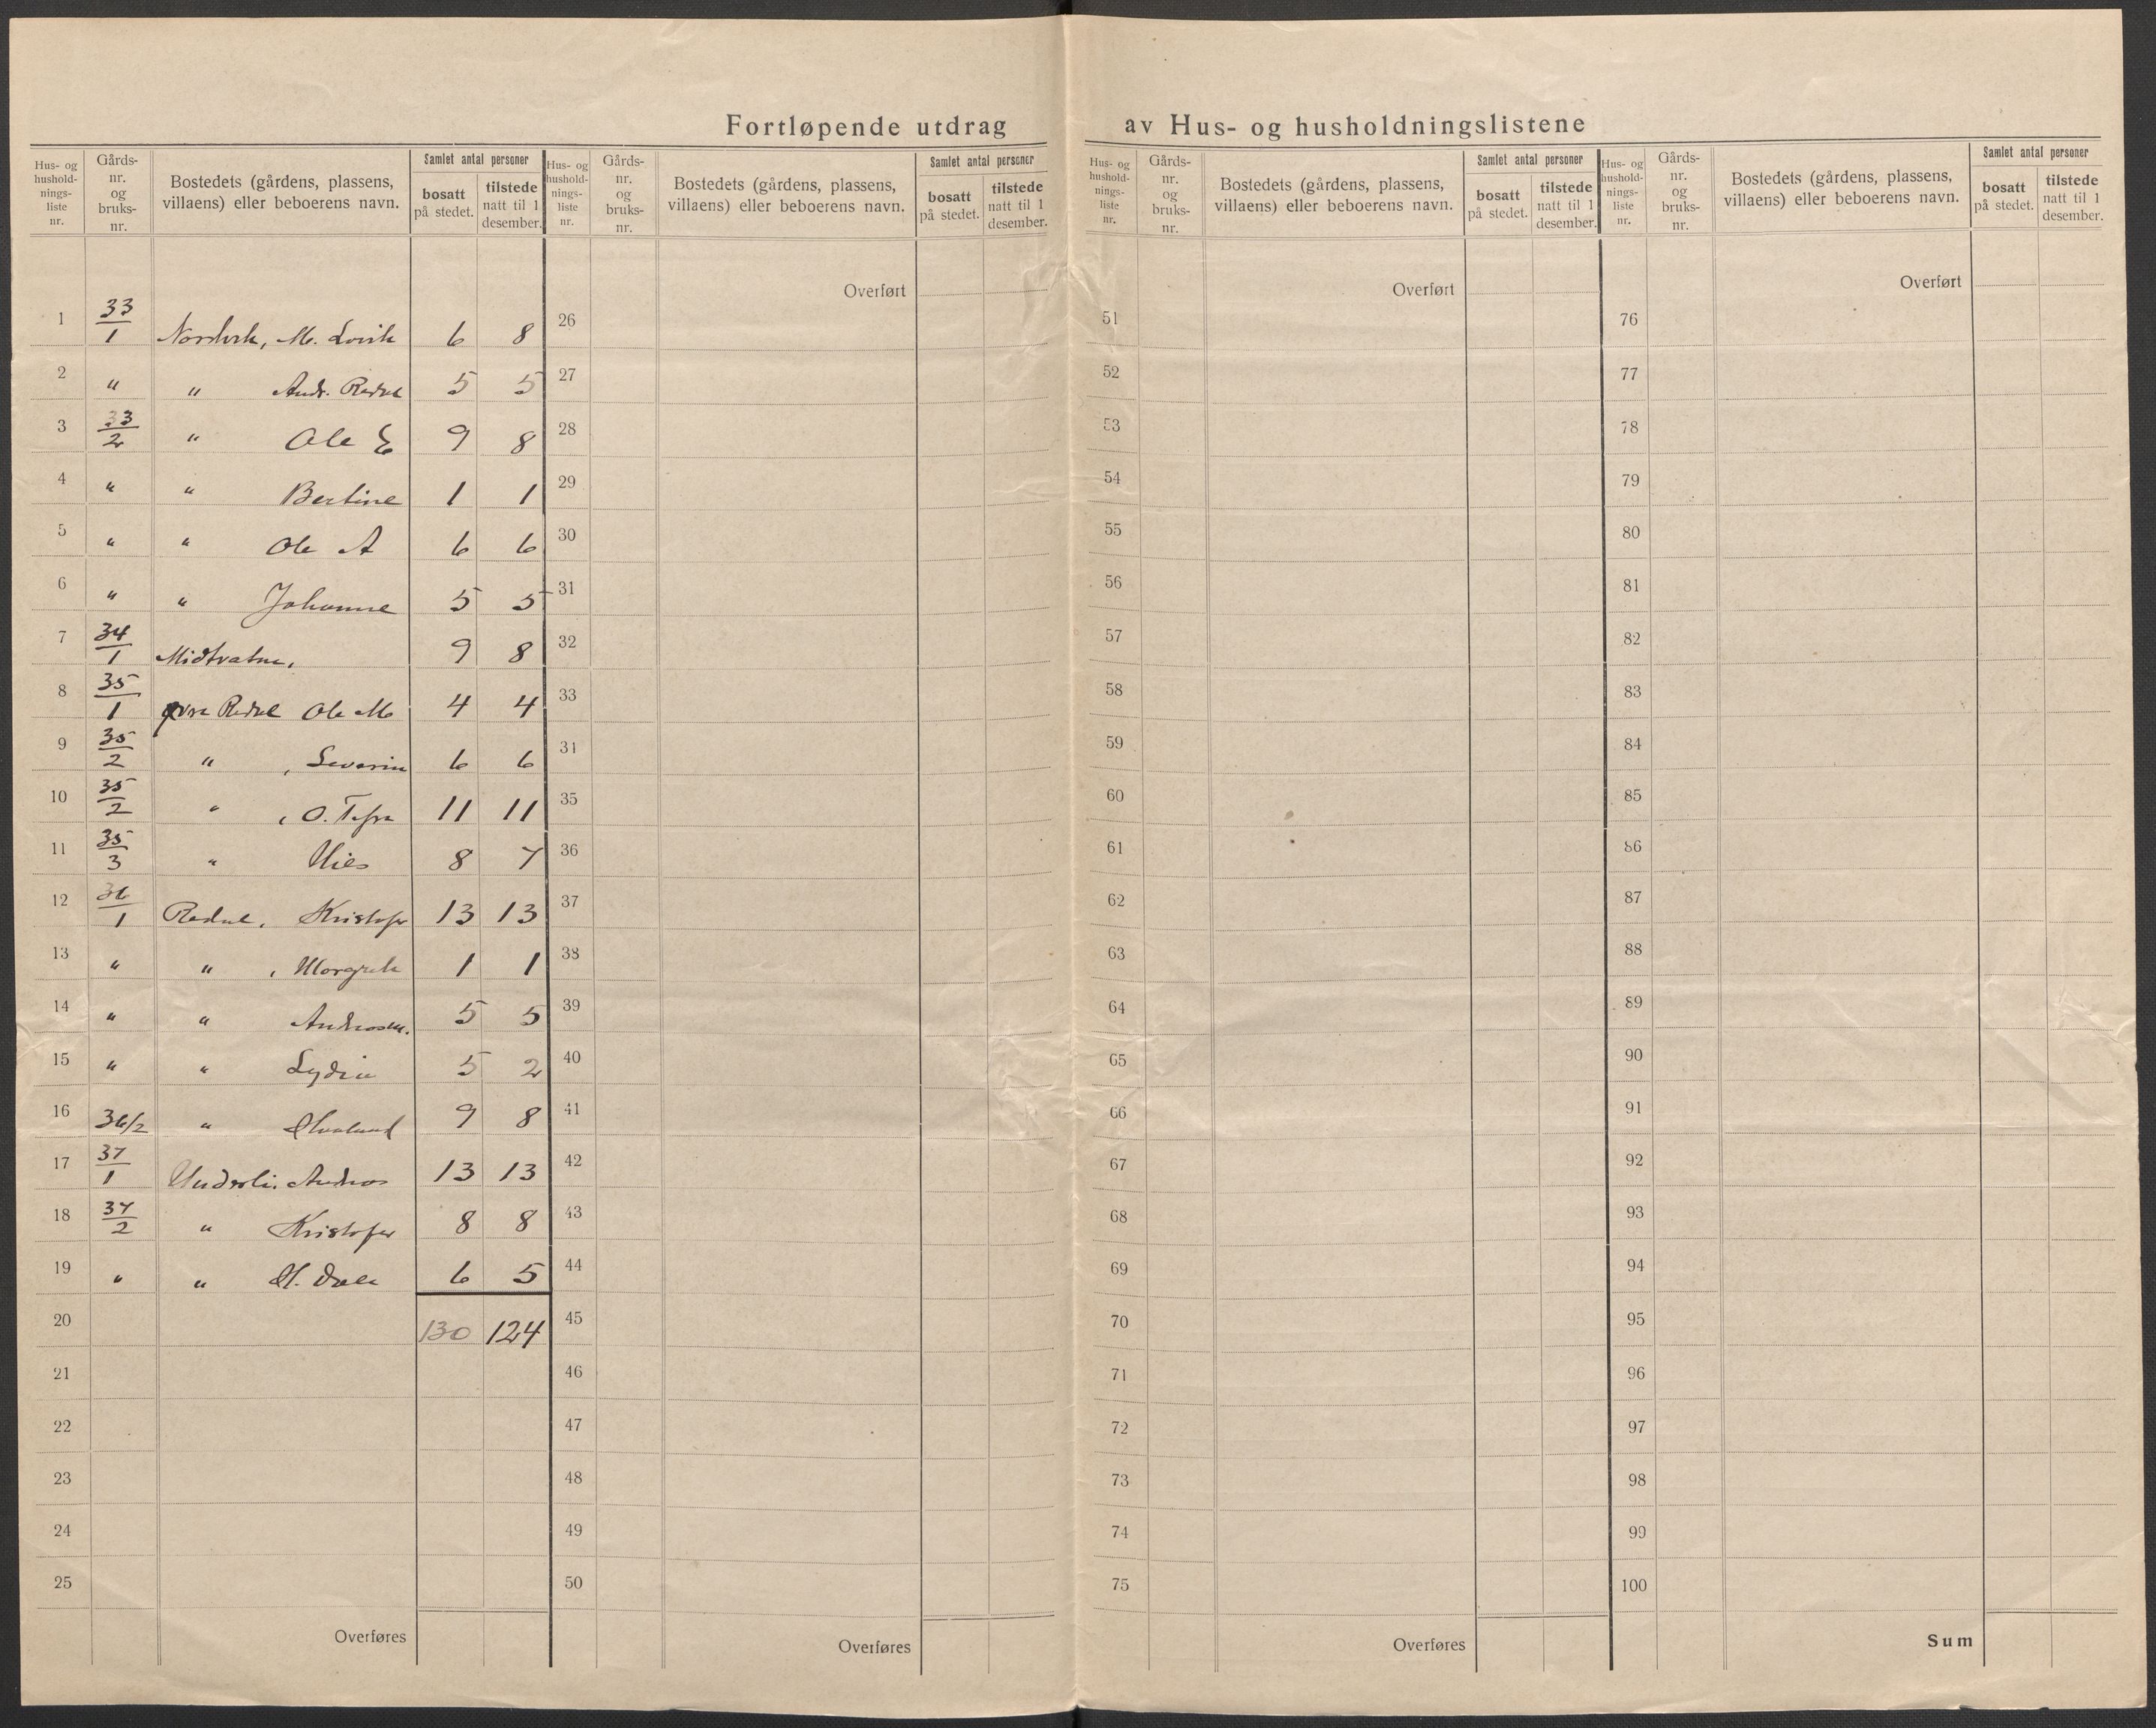 Fortløpende utdrag av Hus- og husholdningslistene
Hus- og hushold-nings-liste nr. Gårds-nr. og bruks-nr. Bostedets (gårdens, plassens, villaens) eller beboerens navn. Samlet antal personer bosatt på stedet. tilstede natt til 1 desember.
1 33/1 M. 6 8
2 " " Andr. 5 5
3 33/2 " Ole E 9 8
4 " " Bertine 1 1
5 " " Ole A 6 6
6 " " Johanne 5 5
7 34/1 Midtvatne. 9 8
8 35/1 Ole M 4 4
9 35/2 " , Severin 6 6
10 35/2 " , O. 11 11
11 35/3 " Nils 8 7
12 36/1 Kristofer 13 13
13 " " , Margrete 1 1
14 " " 5 5
15 " " Lydia 5 2
16 36/2 " 9 8
17 37/1 Underli. Andreas 13 13
18 37/2 " Kristofer 8 8
19 " " 6 5
20 130 124
21
22
23
24
25
Overføres
Hus- og hushold-nings-liste nr. Gårds-nr. og bruks-nr. Bostedets (gårdens, plassens, villaens) eller beboerens navn. Samlet antal personer bosatt på stedet. tilstede natt til 1 desember.
Overført
26
27
28
29
30
31
32
33
34
35
36
37
38
39
40
41
42
43
44
45
46
47
48
49
50
Overføres
Hus- og hushold-nings-liste nr. Gårds-nr. og bruks-nr. Bostedets (gårdens, plassens, villaens) eller beboerens navn. Samlet antal personer bosatt på stedet. tilstede natt til 1 desember.
Overført
51
52
53
54
55
56
57
58
59
60
61
62
63
64
65
66
67
68
69
70
71
72
73
74
75
Overføres
Hus- og hushold-nings-liste nr. Gårds-nr. og bruks-nr. Bostedets (gårdens, plassens, villaens) eller beboerens navn. Samlet antal personer bosatt på stedet. tilstede natt til 1 desember.
Overført
76
77
78
79
80
81
82
83
84
85
86
87
88
89
90
91
92
93
94
95
96
97
98
99
100
Sum